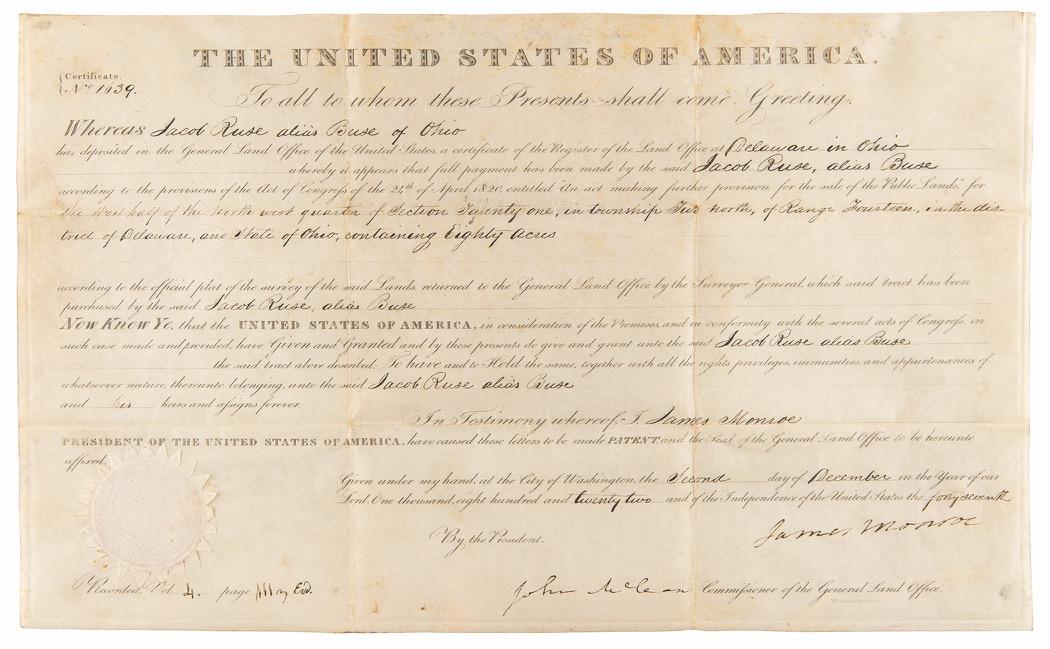 THE UNITED STATES OF AMERICA.
Certificate.
No.
To all to whom these Presents shall come, Greeting:
Whereas Jacob Ruse alias Buse of Ohio
has deposited in the General Land Office of the United States, a certificate of the Register of the Land Office at Delaware in Ohio
whereby it appears that full payment has been made by the said Jacob Ruse, alias Buse
according to the provisions of the Act of Congress of the 24th of April 1820, entitled "An act making further provision for the sale of the Public Lands," for
the West half of the North west quarter of Section Twenty one, in township Five north, of Range Fourteen, in the dis-
trict of Delaware, and State of Ohio, containing Eighty Acres
according to the official plat of the survey of the said Lands, returned to the General Land Office by the Surveyor General, which said tract has been
purchased by the said Jacob Ruse, alias Buse
Now Know Ye, that the UNITED STATES OF AMERICA, in consideration of the Premises, and in conformity with the several acts of Congress, in
such case made and provided, have Given and Granted and by these presents do give and grant unto the said Jacob Ruse alias Buse
the said tract above described; To have and to Hold the same, together with all the rights, privileges, immunities, and appurtenances of
whatsoever nature, thereunto belonging, unto the said Jacob Ruse alias Buse
and his heirs and assigns forever.
In Testimony whereof, I, James Monroe
PRESIDENT OF THE UNITED STATES OF AMERICA, have caused these letters to be made PATENT and the Seal of the General Land Office to be hereunto
affixed.
Given under my hand, at the City of Washington, the Second day of December in the Year of our
Lord, One thousand, eight hundred and twenty two and of the Independence of the United States the forty seventh
James Monroe
By the President.
Recorded, Vol. 4. page
John McLean Commissioner of the General Land Office.